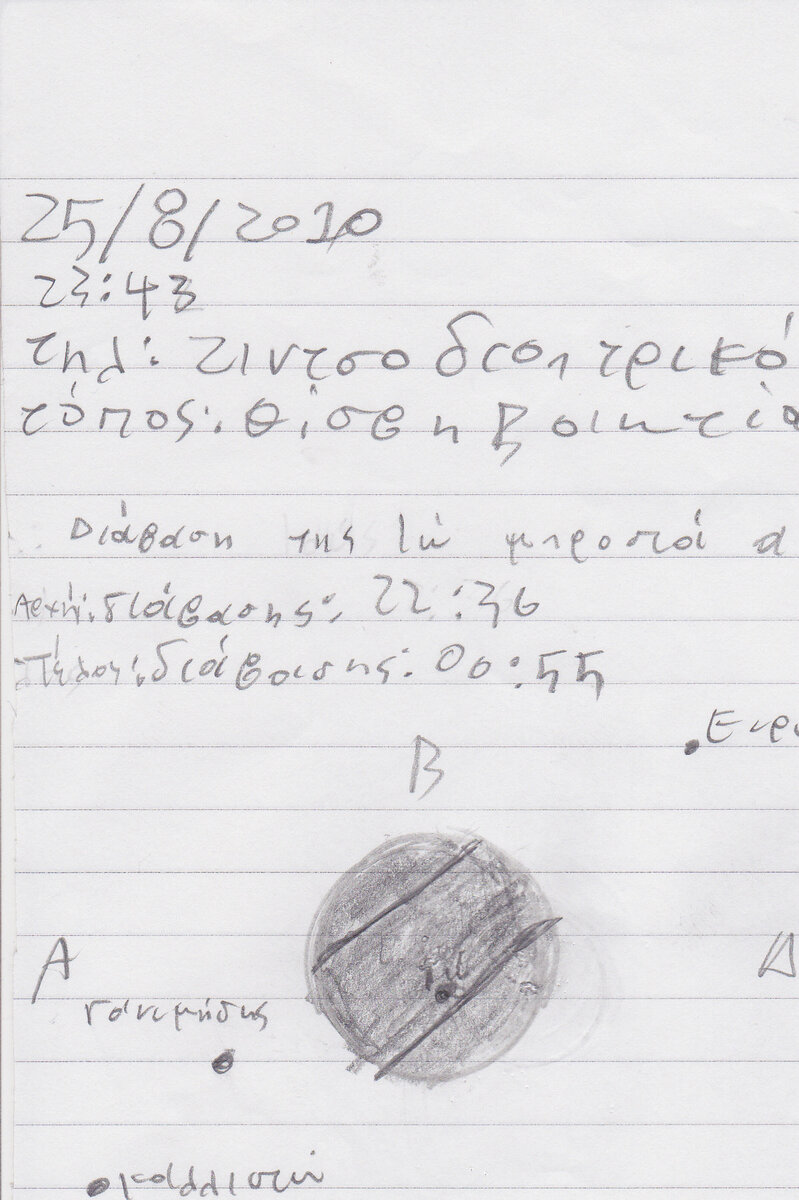 25/8/2010
23:43
τηλ: τιντσο διοπτρικό
τόπος: Θίσβη Βοιωτία
Διάβαση της Ιώ μπροστά α
Αρχή: διάβασης: 22:36
Τέλος: διάβασης: 00:55
Ευρω
Β
Α
Δ
Ιώ
Γανυμήδης
Καλλιστώ